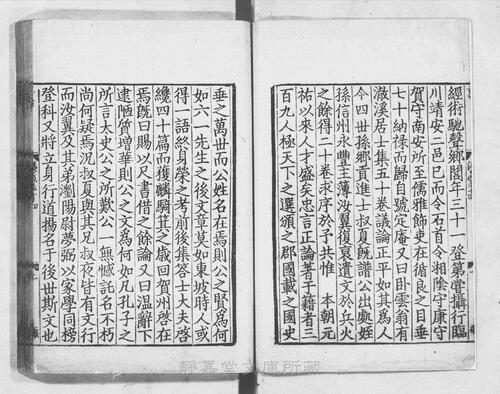 經術馳聲鄉閭年三十一登第嘗攝行臨
川靖安二邑已而令石首令湘陰守康守
賀守南安所至儒雅飾吏在循良之目垂
七十納祿而歸自號定庵又曰卧雲翁有
瀲溪居士集五十卷議論正平如其為人
今四世孫鄉貢進士叔夏既譜公出處姪
孫信州永豐主簿汝翼復裒遺文於兵火
之餘得二十卷求序於予共惟 本朝元
祐以來人才盛矣忠言正論著于籍者三
百九人極天下之選頒之郡國載之國史
垂之萬世而公姓名在焉則公之賢為何
如六一先生之後文章莫如東坡時人或
得一語終身榮之考前後集答士大夫啓
纔四十篇而獲麟騏驥之歲回賀州啓在
焉旣曰賜以尺書借之餘論又曰溫辭下
逮陋質增華則公之文為何如凡孔子之
所言太史公之所歎公一無憾託名不朽
尚何疑焉況叔夏與其兄叔夜皆有文行
而汝翼及其弟瀏陽尉夢弼以家學同牓
登科又將立身行道揚名于後世斯文也
靜嘉堂文庫所藏